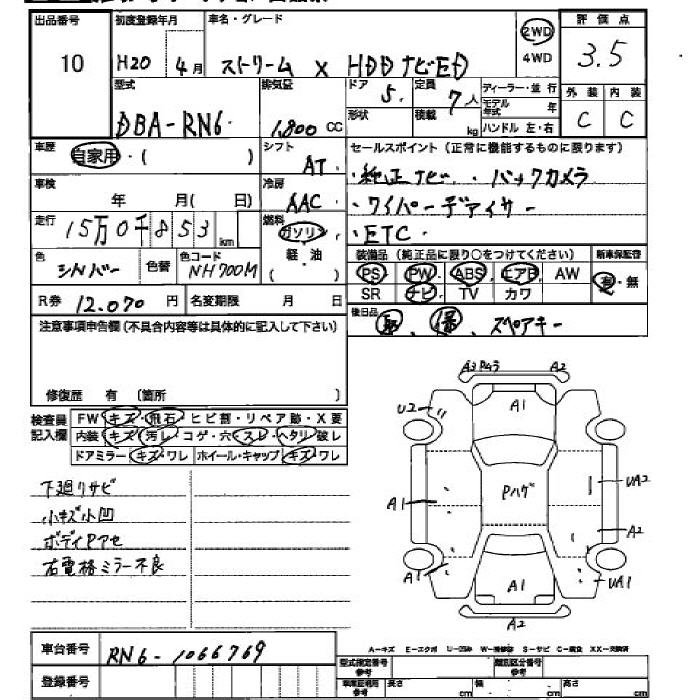 出品番号 初度登録年月 車名・グレード 2WD 評価点
10 H20 4月 ストリーム X HDDナビED 4WD 3.5
型式 排気量 ドア 5. 定員 7人 ディーラー・並行 外装 内装
DBA-RN6 1,800 CC 形状 積載 kg モデル年式 年 C C
ハンドル 左・右
車歴 自家用・( ) シフト AT セールスポイント(正常に機能するものに限ります)
車検 年 月( 日) 冷房 AAC ・純正ナビ ・バックカメラ
走行 15万0千853km 燃料 ガソリン ・ワイパーデアイサー
軽・油 ( ) ・ETC
色 シルバー 色替 色コード NH700M 装備品(純正品に限り○をつけてください) 新車保証書
PS PW ABS エアB AW 有・無
R券 12.070円 名変期限 月 日 SR ナビ TV カワ
注意事項申告欄(不具合内容等は具体的に記入して下さい) 後日品 スペアキー
修復歴 有 (箇所 )
検査員記入欄 FW キズ・飛石・ヒビ割・リペア跡・X要
内装 キズ・汚レ・コゲ・穴・スレ・ヘタリ・破レ
ドアミラー キズ・ワレ ホイール・キャップ キズ・ワレ
A3 Pムラ A2
U2 A1
下廻りサビ
小キズ小凹
ボディPアセ
右電格ミラー不良
A1 Pハゲ UA2
A2
A1 A1 UA1
A2
車台番号 RN6-1066769
登録番号
A-キズ E-エクボ U-凹み W-補修跡 S-サビ C-腐食 XX-交換済
型式指定番号 参考 類別区分番号 参考
車庫証明用 参考 長さ cm 幅 cm 高さ cm